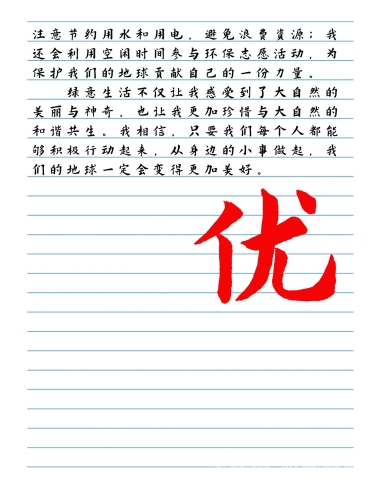 注意节约用水和用电，避免浪费资源；我
还会利用空闲时间参与环保志愿活动，为
保护我们的地球贡献自己的一份力量。
绿意生活不仅让我感受到了大自然的
美丽与神奇，也让我更加珍惜与大自然的
和谐共生。我相信，只要我们每个人都能
够积极行动起来，从身边的小事做起，我
们的地球一定会变得更加美好。
优